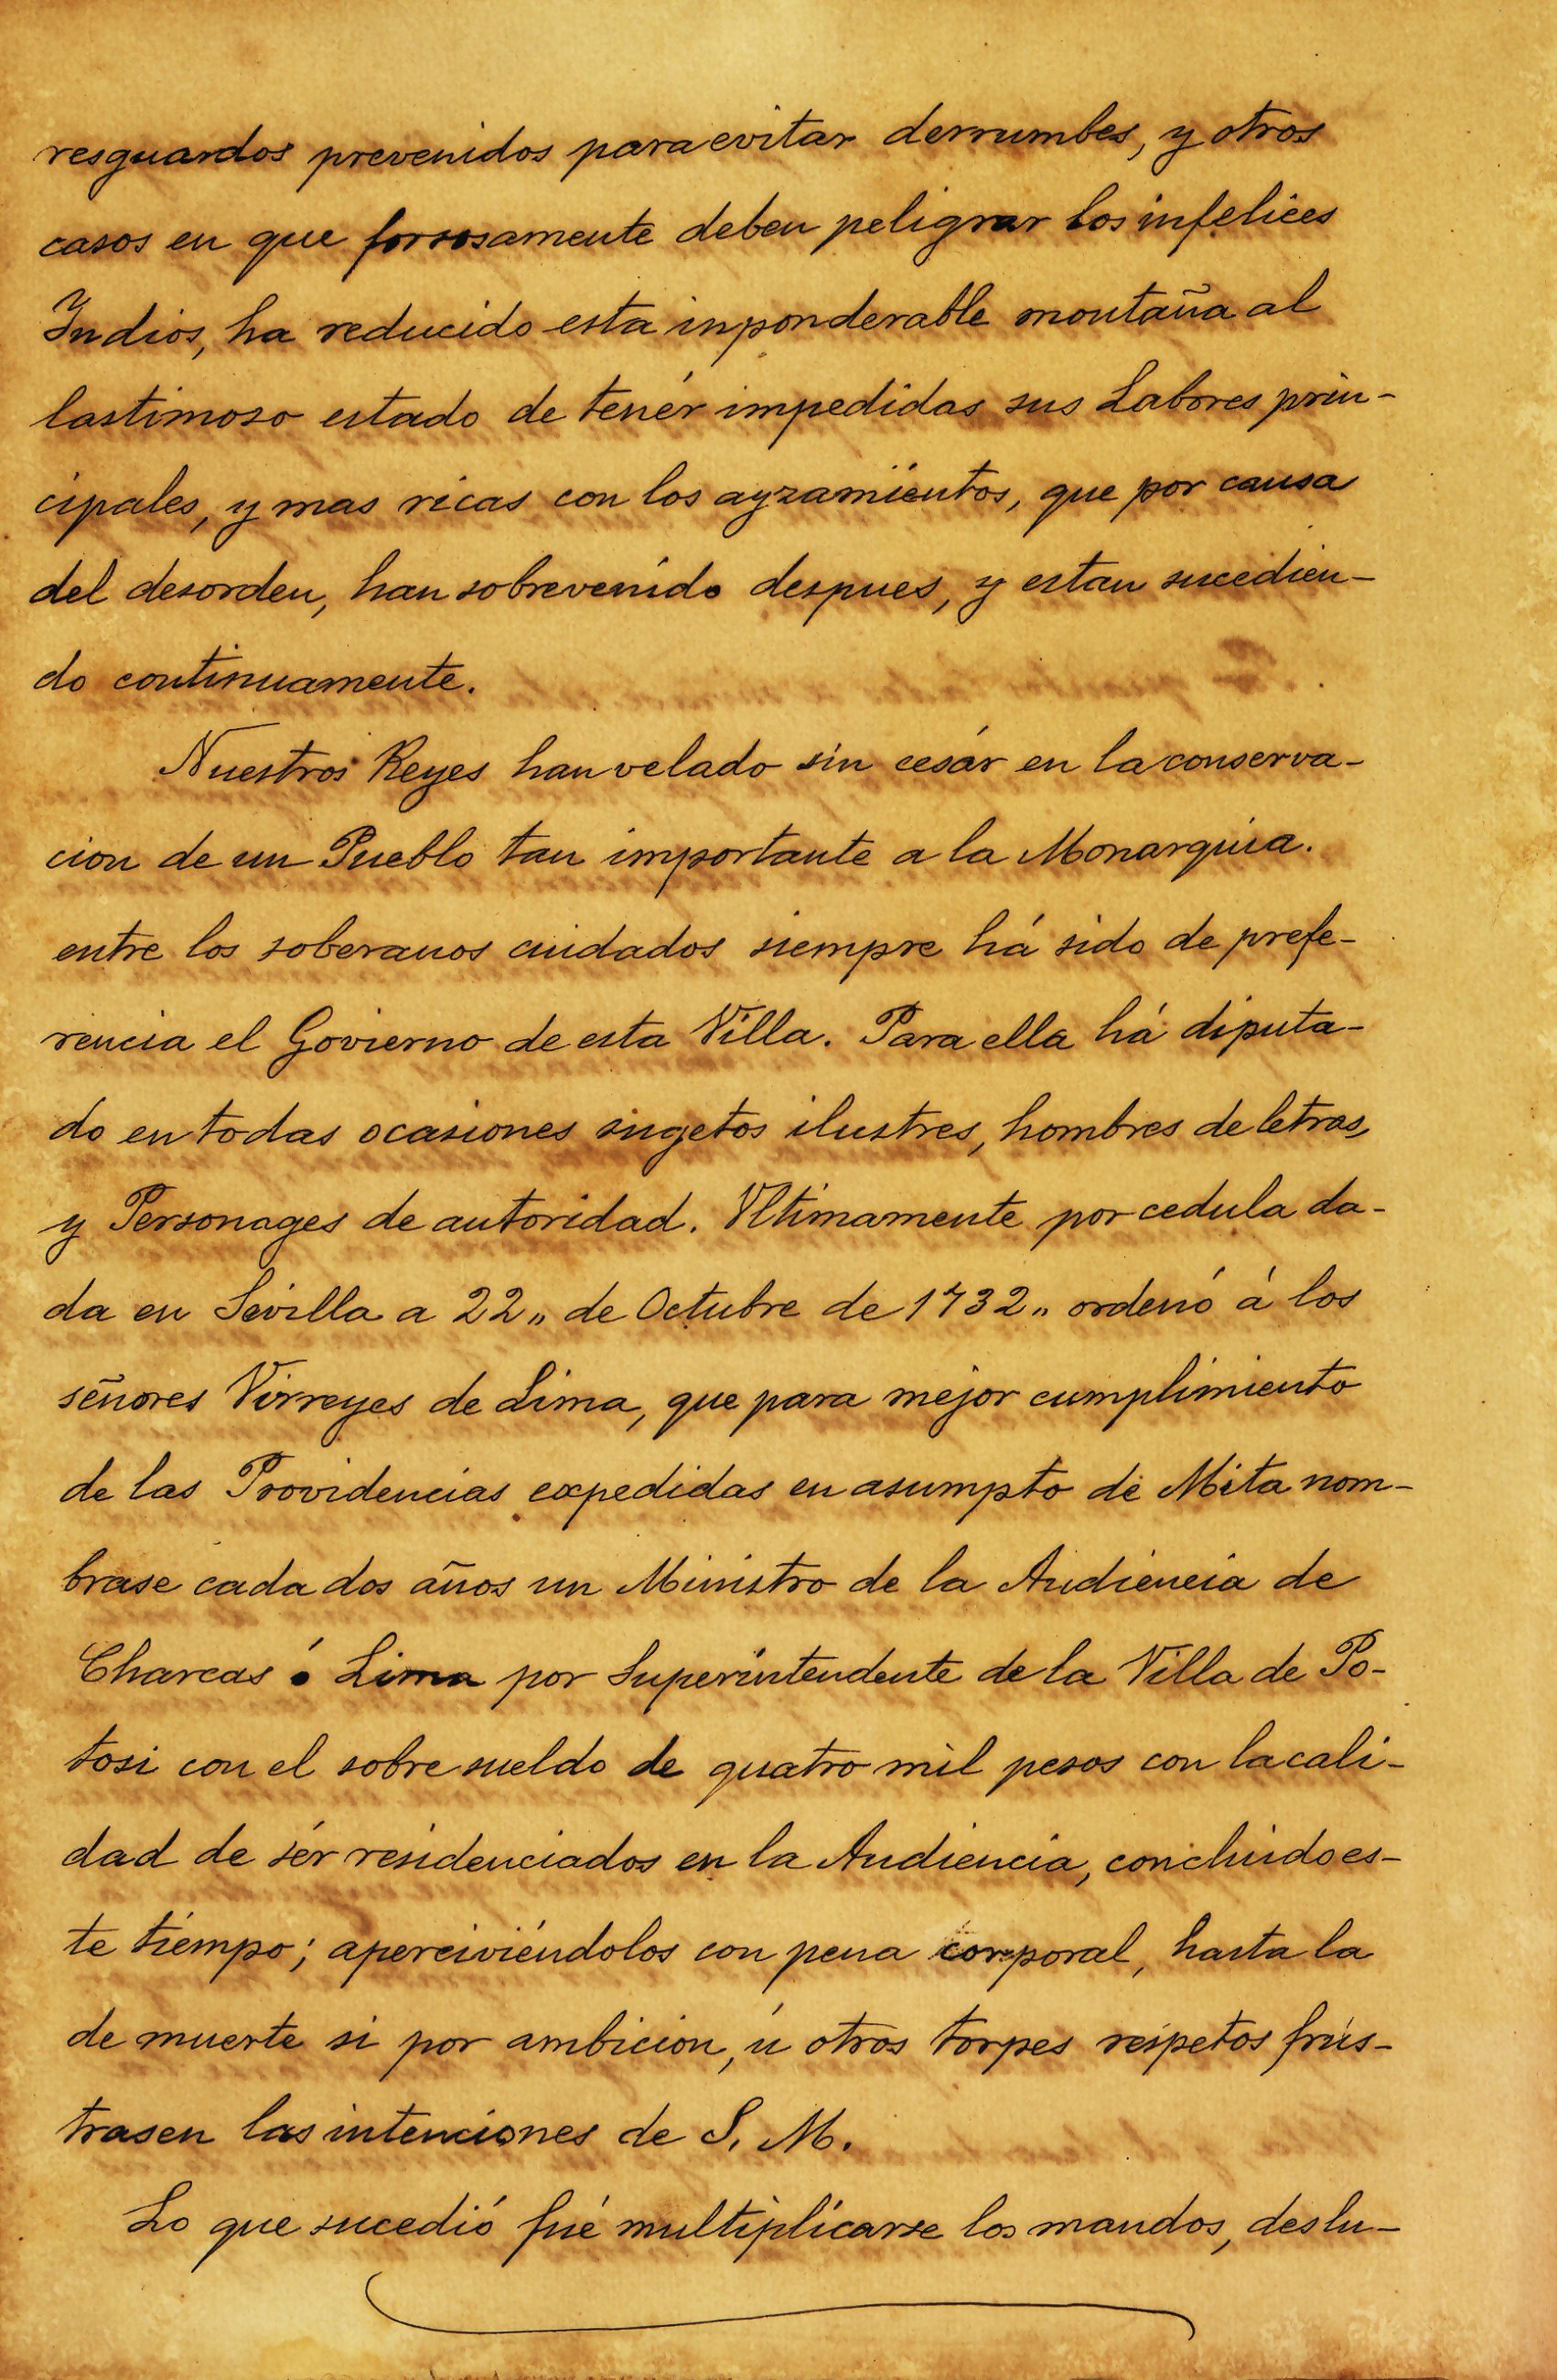 resguardos prevenidos para evitar derrumbes, y otros
casos en que forsosamente deben peligrar los infelices
Indios, ha reducido esta inponderable montaña al
lastimoso estado de tenér impedidas sus Labores prin-
cipales, y mas ricas con los ayzamientos, que por causa
del desorden, han sobrevenido despues, y estan sucedien-
do continuamente.
Nuestros Reyes han velado sin cesár en la conserva-
cion de un Pueblo tan importante a la Monarquia.
entre los soberanos cuidados siempre há sido de prefe-
rencia el Govierno de esta Villa. Para ella há diputa-
do en todas ocasiones sugetos ilustres, hombres de letras,
y Personages de autoridad. Vltimamente por cedula da-
da en Sevilla a 22,, de Octubre de 1732,, ordenó á los
señores Virreyes de Lima, que para mejor cumplimiento
de las Providencias expedidas en asumpto de Mita nom-
brase cada dos años un Ministro de la Audiencia de
Charcas ó Lima por Superintendente de la Villa de Po-
tosi con el sobre sueldo de quatro mil pesos con la cali-
dad de sér residenciados en la Audiencia, concluido es-
te tiempo; aperciviéndolos con pena corporal, hasta la
de muerte si por ambicion, ú otros torpes respetos frus-
trasen las intenciones de S. M.
Lo que sucedió fué multiplicarse los mandos, deslu-